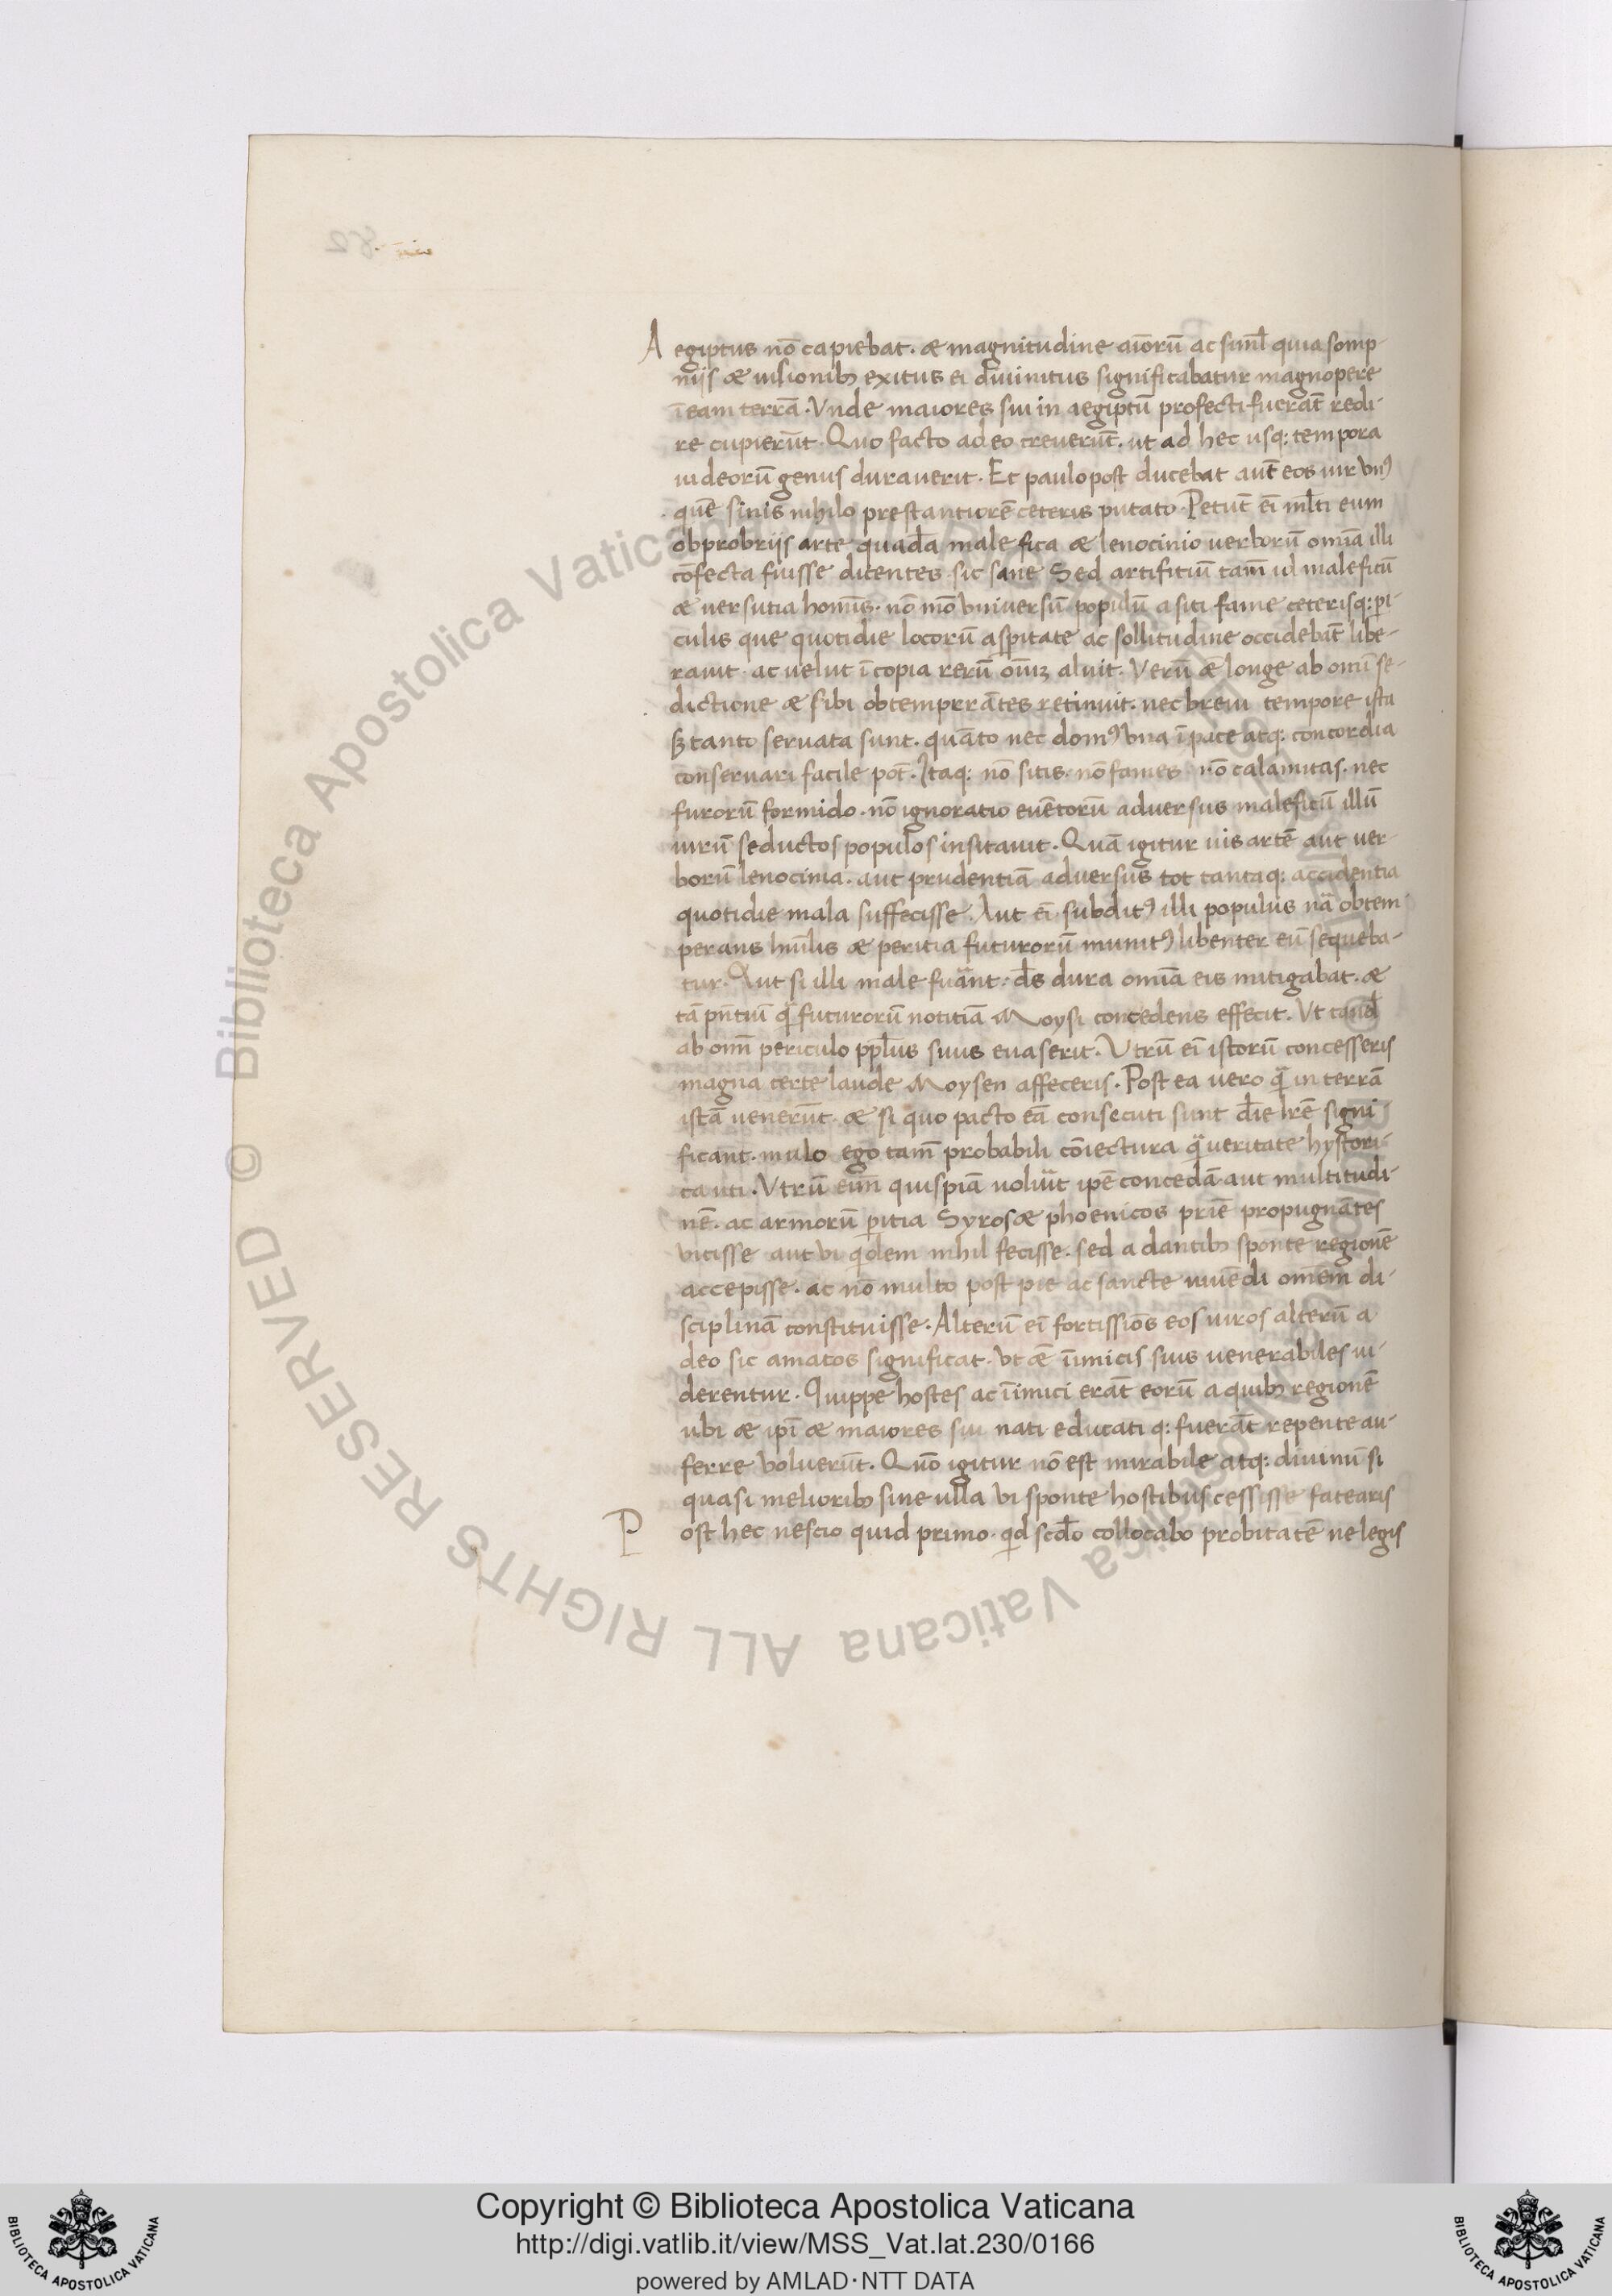 Aegiptus nō capiebat. æ magnitudine aiorū ac simł quia somp-
niis æ uisionib; exitus ei diuinitus significabatur magnopere
ī eam terrā. Vnde maiores sui in aegiptū profecti fuerāt redi-
re cupierūt. Quo facto adeo creverūt. ut ad hec usq; tempora
iudeorū genus duraverit. Et paulo post ducebat aut̄ eos uir vnꝰ
quē sinis nihilo prestantiorē ceteris putato. Petūt ei m̄lti eum
obprobriis arte quadā malefica æ lenocinio uerborū omīa illi
cōfecta fuisse dicentes. sic sane Sed artifitiū tam̄ id maleficū
æ versutia homīs. nō mō vniversū populū a siti fame ceterisq; pi-
culis que quotidie locorū aspitate ac sollitudine occidebāt libe-
rauit. ac velut ī copia rerū om̄iꝫ aluit. Verū æ longe ab omī se-
dictione æ sibi obtemperātes retinuit. nec breui tempore ista
sꝫ tanto seruata sunt. quāto nec domꝰ vna ī pace atq; concordia
conseruari facile pot̄. Itaq; nō sitis. nō fames. nō calamitas. nec
furorū formido. nō ignoratio euētorū adversus maleficū illū
uirū seductos populos insitauit. Quā igitur uis artē aut ver-
borū lenocinia. aut prudentiā adversus tot tantaq; accidentia
quotidie mala suffecisse. Aut ei subditꝰ illi populus nā obtem
perans humilis æ peritia futurorū munitꝰ libenter eū sequeba-
tur. Aut si illi male fuānt: d̄s dura omīa eis mitigabat. æ
tā pn̄tiū q̄ futurorū notitiā Moysi concedens effecit. Vt tand̄
ab om̄i periculo ppłus suus euaserit. Vtrū ei istorū concesseris
magna certe laude Moysen affeceris. Post ea uero q̄ in terrā
istā venerūt. æ si quo pacto eā consecuti sunt d̄ie lr̄e signi
ficant. malo ego tam̄ probabili cōiectura q̄ veritate hystori-
ca uti. Vtrū eim̄ quispiā uoluit ipē concedā aut multitudi-
nē. ac armorū pitia Syros æ phoenicos prīe propugnātes
vicisse aut vi qdem nihil fecisse. sed a dantib; sponte regionē
accepisse. ac nō multo post pie ac sancte uiuēdi omem̄ di-
sciplinā constituisse. Alterū ei fortissiōs eos uiros alterū a
deo sic amatos significat. vt æ īimicis suis venerabiles ui-
derentur. Quippe hostes ac īimici erāt eorū a quib; regionē
ubi æ ipī æ maiores sui nati educati q; fuerāt repente au-
ferre voluerūt. Quō igitur nō est mirabile atq; diuinū si
quasi meliorib; sine ulla vi sponte hostibus cessisse fatearis
Post hec nescio quid primo. qd scd̄o collocabo probitatē ne legis
Copyright © Biblioteca Apostolica Vaticana
http://digi.vatlib.it/view/MSS_Vat.lat.230/0166
powered by AMLAD·NTT DATA
BIBLIOTECA APOSTOLICA VATICANA
BIBLIOTECA APOSTOLICA VATICANA
© Biblioteca Apostolica Vaticana ALL RIGHTS RESERVED